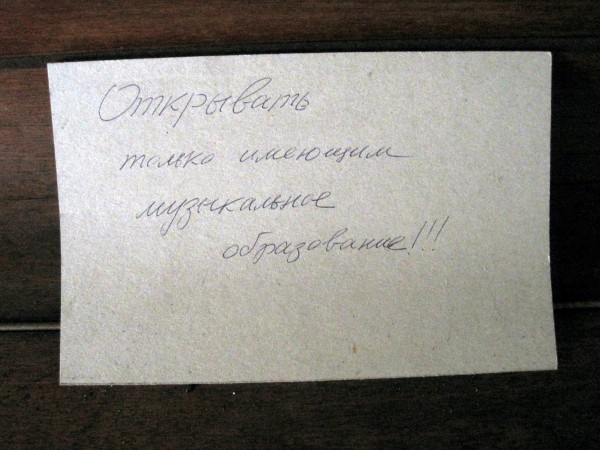 Открывать
только имеющим
музыкальное
образование!!!